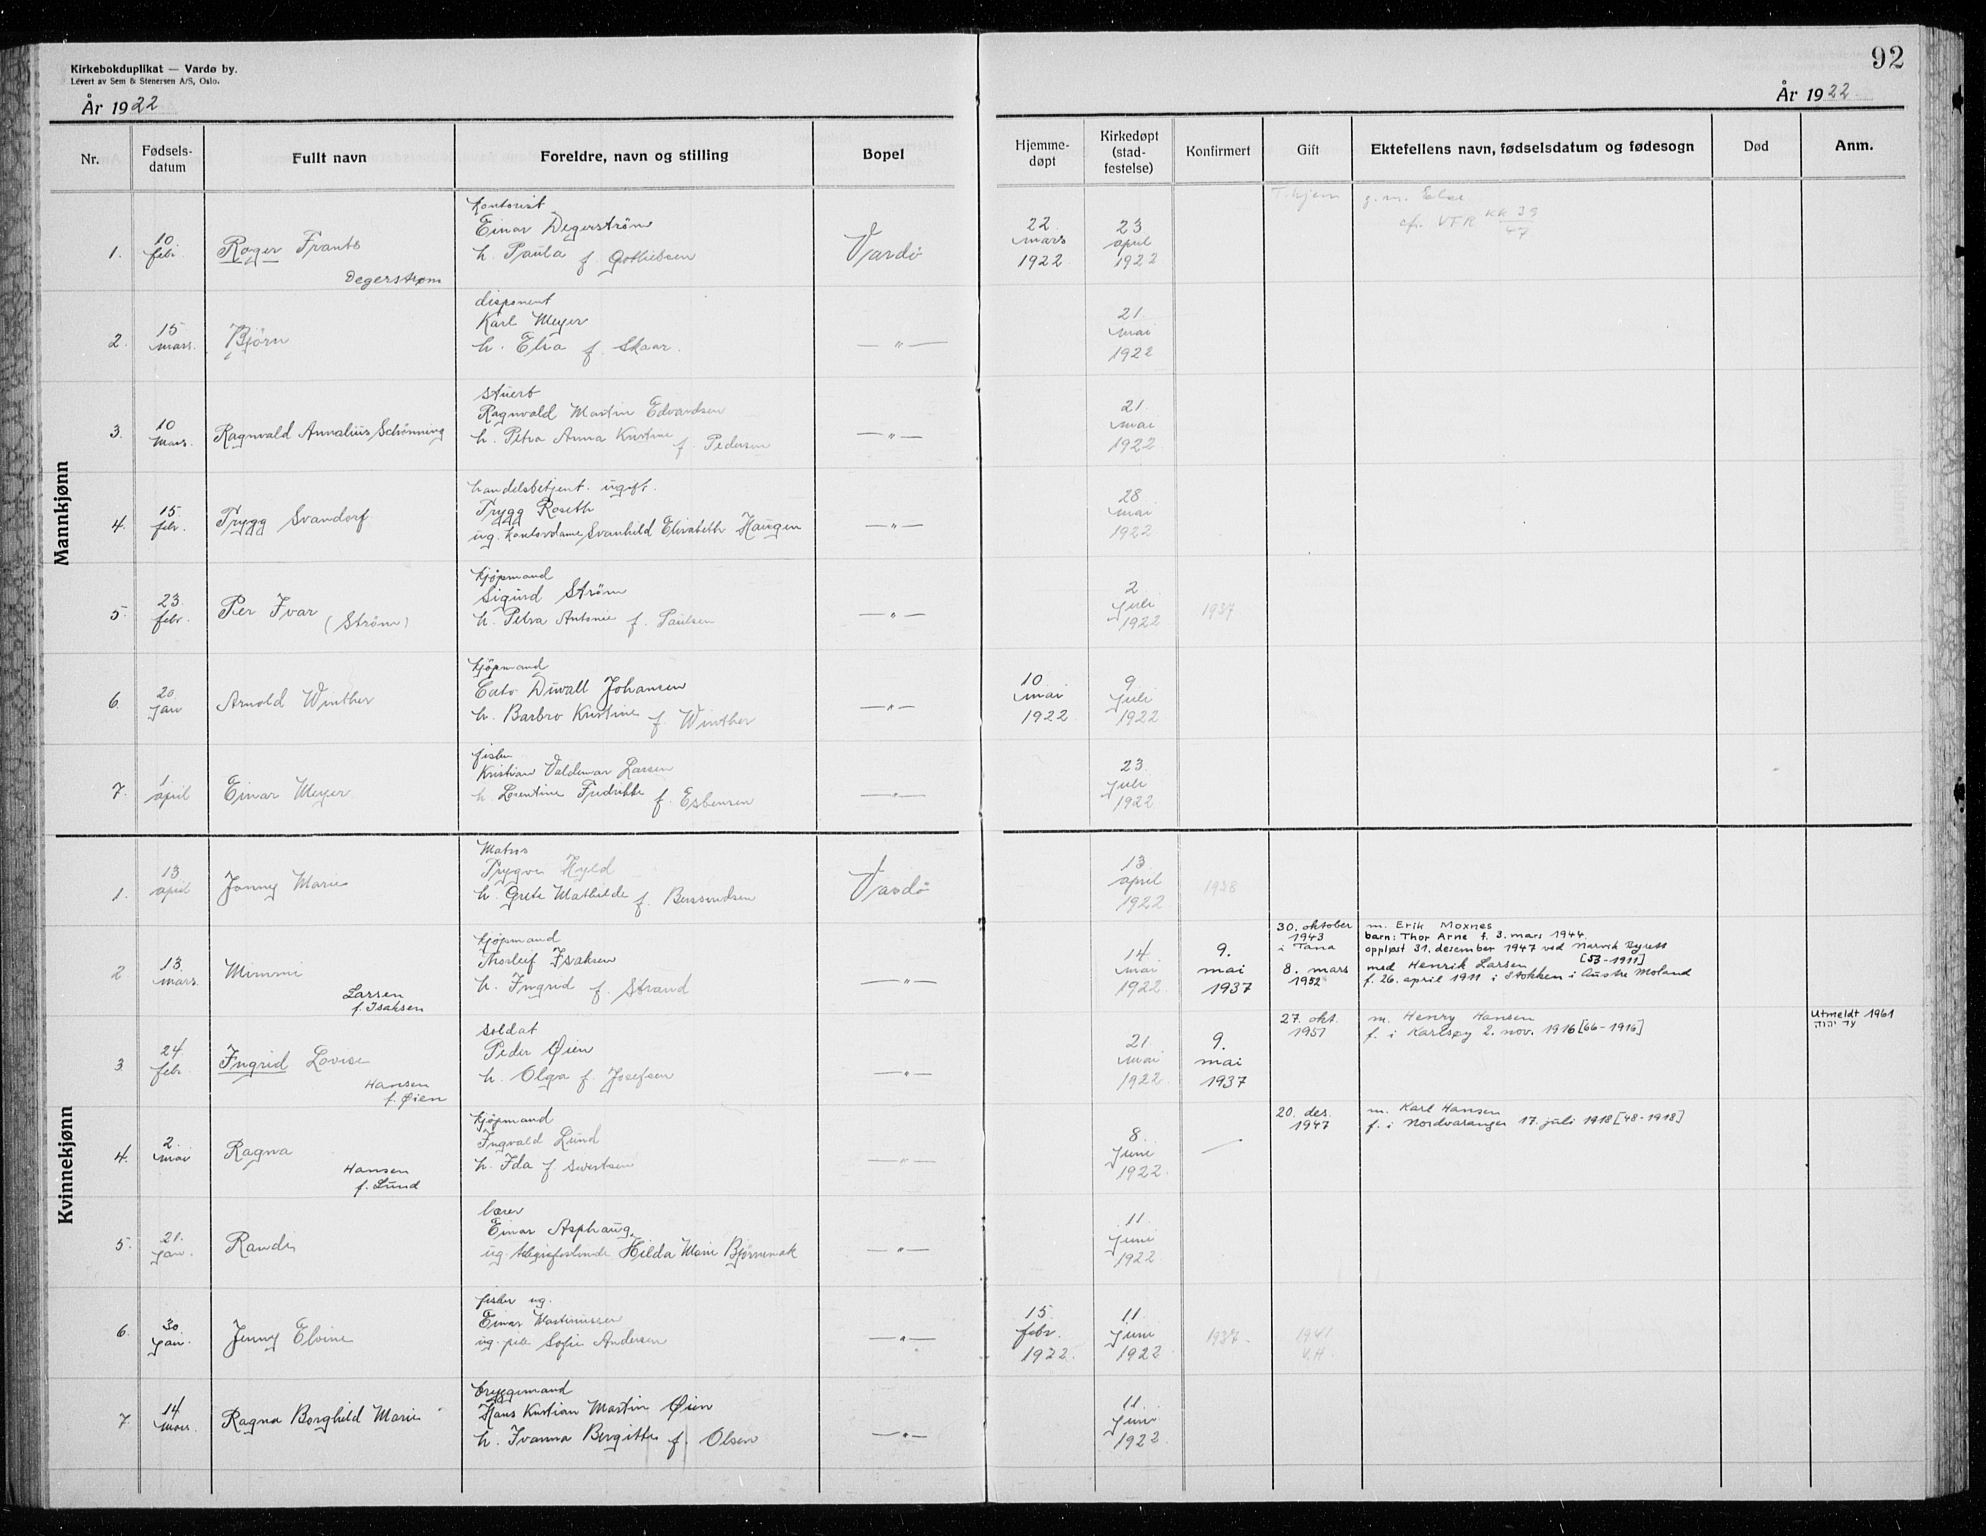 Kirkebokduplikat — Vardø by.
Levert av Sem & Stenersen A/S, Oslo.
92
År 1922
År 1922
Nr.
Fødsels-
datum
Fullt navn
Foreldre, navn og stilling
Bopel
Hjemme-
døpt
Kirkedøpt
(stad-
festelse)
Konfirmert
Gift
Ektefellens navn, fødselsdatum og fødesogn
Død
Anm.
Mannkjønn
1.
10
febr.
Roger Frants
Degerstrøm
Kontorist
Einar Degerstrøm
h. Paula f. Gotliebsen
Vardø
22
mars
1922
23
april
1922
T.hjem
g.m. Else
cfr. VFR KK 39
47
2.
15
mars.
Bjørn
disponent
Karl Meyer
h. Elsa f. Skaar.
— " —
21
mai
1922
3.
10
mars.
Ragnvald Annalius Schönning
stuert
Ragnvald Martin Edvardsen
h. Petra Anna Kristine f. Pedersen
— " —
21
mai
1922
4.
15
febr.
Trygg Svandorf
handelsbetjent. ugift.
Trygg Roseth
ug. kontordame Svanhild Elisabeth Haugen
— " —
28
mai
1922
5.
23
febr.
Per Ivar (Strøm)
kjøpmand
Sigurd Strøm
h. Petra Antonie f. Paulsen
— " —
2
juli
1922
1937
6.
20
jan
Arnold Winther
kjøpmand
Eato Duvall Johansen
h. Barbro Kristine f. Winther
— " —
10
mai
1922
9
juli
1922
7.
1
april
Einar Meyer
fisker
Kristian Valdemar Larsen
h. Lorentine Fredrikke f. Esbensen
— " —
23
juli
1922
Kvinnekjønn
1.
13
april
Jonny Marie
Matros
Trygve Hyld
h. Grete Mathilde f. Berntsen
Vardø
13
april
1922
1938
2
13.
mars.
Mimmi
Larsen
f. Isaksen
kjøpmand
Thorleif Isaksen
h. Ingrid f. Strand
— " —
14
mai
1922
9.
mai
1937
30. oktober
1943
i Tana
8. mars
1952
m. Erik Moxnes
barn: Thor Arne f. 3. mars 1944
oppløst 31. desember 1947 ved Narvik Byrett
[53-1911]
med Henrik Larsen
f. 26. april 1911 i Stokken i Austre Moland
3
24
febr.
Ingrid Lovise
Hansen
f. Øien
soldat
Peder Øien
h. Olga f. Josefsen
— " —
21
mai
1922
9.
mai
1937
27. okt.
1951
m. Henry Hansen
f. i Karlsøy 2. nov. 1916 [66-1916]
Utmeldt 1961
עד יהוה
4.
2.
mai
Ragna
Hansen
f. Lund
kjøpmand
Ingvald Lund
h. Ida f. Sivertsen
— " —
8
juni
1922
—
20. des.
1947
m. Karl Hansen
f. i Nordvaranger 17. juli 1918 [48-1918]
5.
21.
jan.
Randi
bærer
Einar Asphaug
ug. Hilda Marie Bjørnenak
— " —
11.
juni
1922
6.
30
jan.
Jenny Elvine
fisker ug.
Einar Martinussen
ug. pike Sofie Andersen
— " —
15.
febr.
1922.
11.
juni
1922
1937
1941
V.H.
7.
14
mars.
Ragna Borghild Marie
bryggemand
Hans Kristian Martin Øien
h. Ivanna Bergitte f. Olsen
— " —
11.
juni
1922